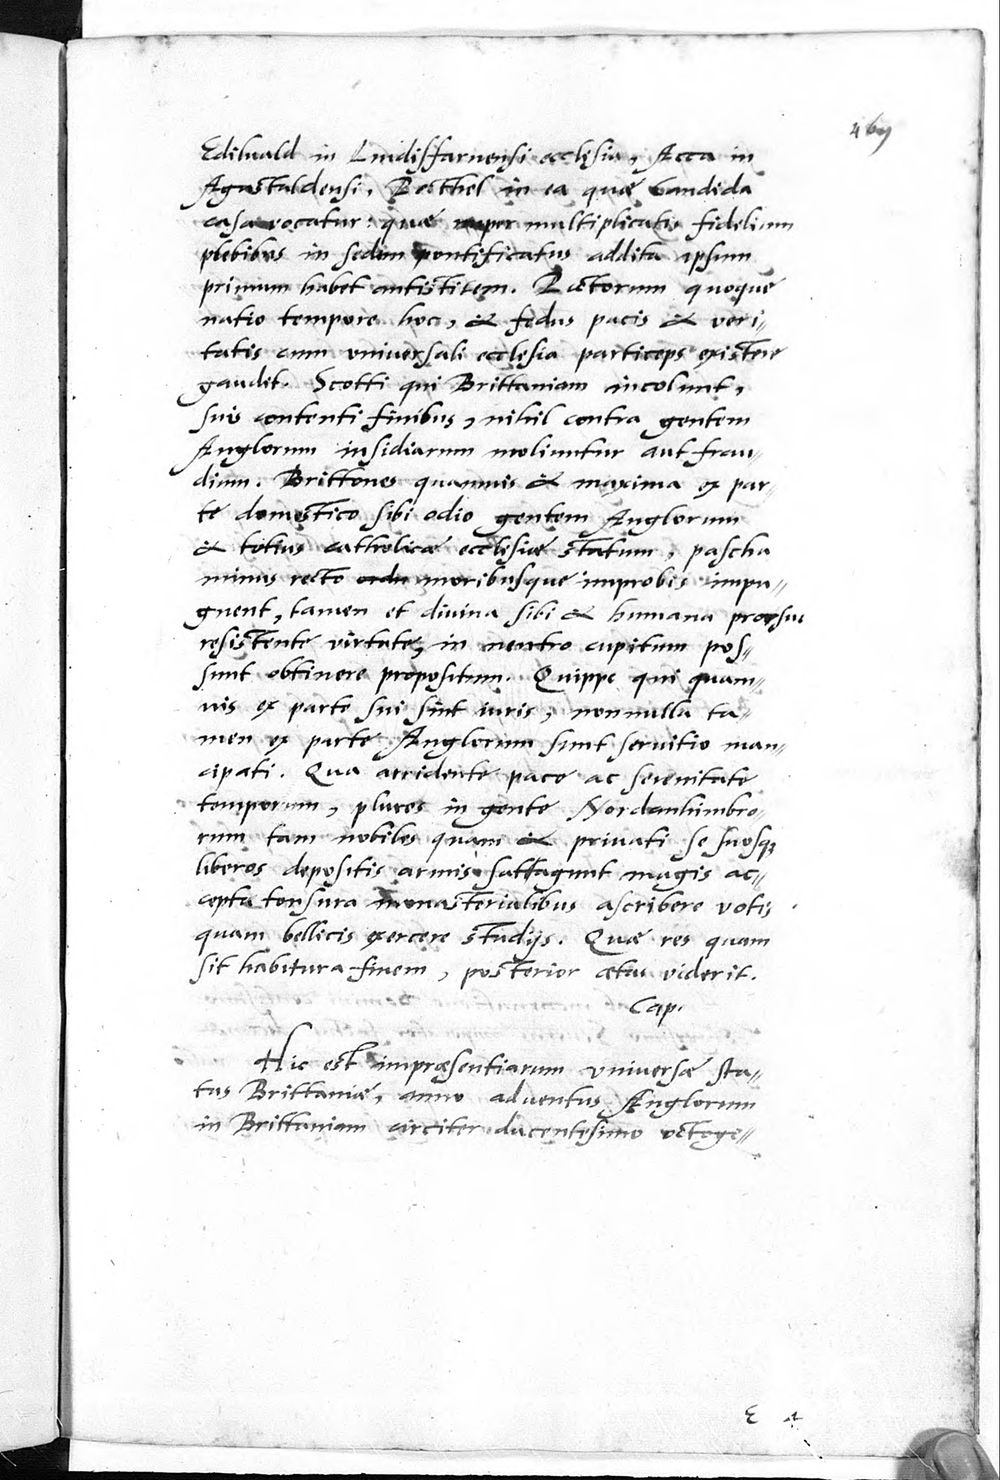 469
Ediluald in Lindisffarnensi ecclęsia, Acca in
Agustaldensi, Pecthel in ea quæ Candida
casa vocatur: quæ nuper multiplicatis fidelium
plebibus in sedem pontificatus addita ipsum
primum habet antistitem. Pictorum quoque
natio tempore hoc, & fędus pacis & veri//
tatis cum vniversali ecclęsia particeps existere
gaudet. Scotti qui Brittaniam incolunt,
suis contenti finibus, nihil contra gentem
Anglorum insidiarum moliuntur aut frau//
dium. Brittones quamuis & maxima ex par//
te domestico sibi odio gentem Anglorum
& totius catholicæ ecclęsiæ statum, pascha
minus recto moribusque improbis impu//
gnent, tamen et divina sibi & humana prorsus
resistente virtute, in neutro cupitum pos//
sunt obtinere propositum. Quippe qui quam//
uis ex parte sui sint iuris, nonnulla ta//
men ex parte Anglorum sunt servitio man//
cipati. Qua arridente pace ac serenitate
temporum, plures in gente Nordanhimbro//
rum tam nobiles quam & privati se suosq;
liberos depositis armis sattagunt magis ac//
cepta tonsura monasterialibus ascribere votis
quam bellicis exercere studijs. Quæ res quam
sit habitura finem, posterior ætas viderit.
Cap.
Hic est impræsentiarum vniversæ sta//
tus Brittaniæ, anno adventus Anglorum
in Brittaniam circiter ducentesimo octoge//
E 4